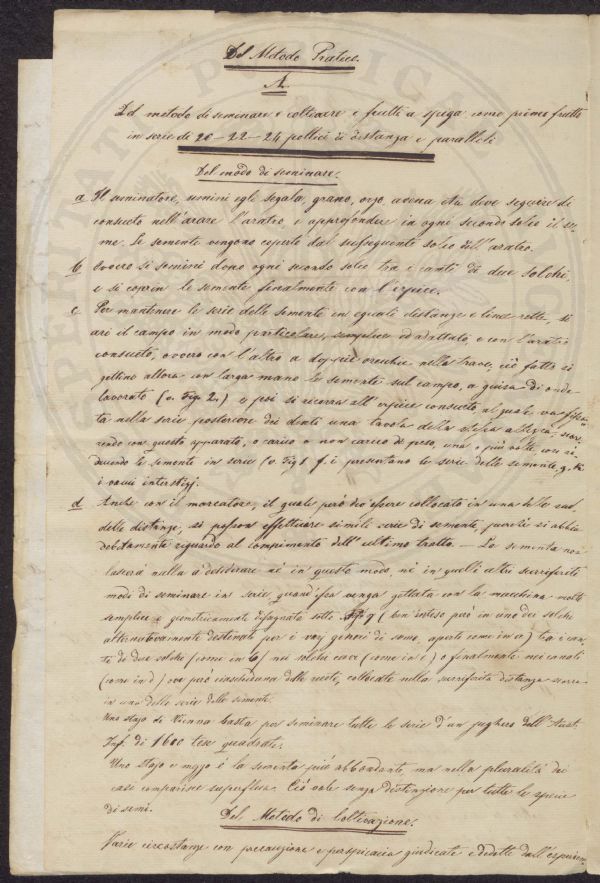 Del Metodo Pratico.
A.
Del metodo di seminare e coltivare i frutti a spiga come primo frutto
in serie di 20-22-24 pollici di distanza e paralleli
Del modo di seminare.
a Il seminatore, semini egli segala, grano, orzo, avena deve seguire di
consueto nell'arare l'aratro, e approfondire in ogni secondo solco il se-
me. Le semente vengono coperte dal susseguente solco dell'aratro.
b Ovvero si semini dono ogni secondo solco tra i canti di due solchi,
e si copran le semente finalmente con l'erpice.
c. Per mantenere le serie delle semente in eguali distanze e linee rette, si
ari il campo in modo particolare, semplice ed adattato, e con l'aratro
consueto, ovvero con l'altro a doppie orecchie nella trave, ciò fatto si
gettino allora con larga mano le semente sul campo, a guisa di onde
lavorato (v. Fig. 2.) e poi si ricorra all'erpice consueto al quale va fissa-
ta nella serie posteriore dei denti una tavola della stessa altezza, scor-
rendo con questo apparato, o carico o non carico di peso, una o più volte, così ri-
ducendo le semente in serie (v. Fig 1 f. i presentano le serie delle semente, g. h
i vacui interstizj.
d Anche con il marcatore, il quale però dee essere collocato in una delle sud-
dette distanze, si posson effettuare simili serie di semente, purchè si abbia
debitamente riguardo al compimento dell'ultimo tratto. — La sementa non
lascerà nulla a desiderare nè in questo modo, nè in quelli altri surriferiti
modi di seminare in serie quand'essa venga gettata con la macchina molto
semplice e geometricamente disegnata sotto (ben inteso però in uno dei solchi
alternativamente destinati per i varj generi di seme, aperti come in a) tra i can-
ti di due solchi (come in b) nei solchi cavi (come in c) o finalmente nei canali
(come in d) ove può collocata nella surriferita distanza scorre
in una delle serie delle semente.
Uno stajo di Vienna basta per seminare tutte le serie d'un jughero dell'Aust.
Inf. di 1600 tese quadrate.
Uno stajo e mezzo è la sementa più abbondante, ma nella pluralità dei
casi comparisce superflua. Ciò vale senza distinzione per tutte le specie
di semi.
Del Metodo di Coltivazione.
Varie circostanze con precauzione e perspicacia giudicate e dedotte dall'esperien-